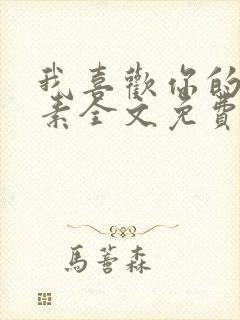 我喜歡你的
素全文免費
馬薈森